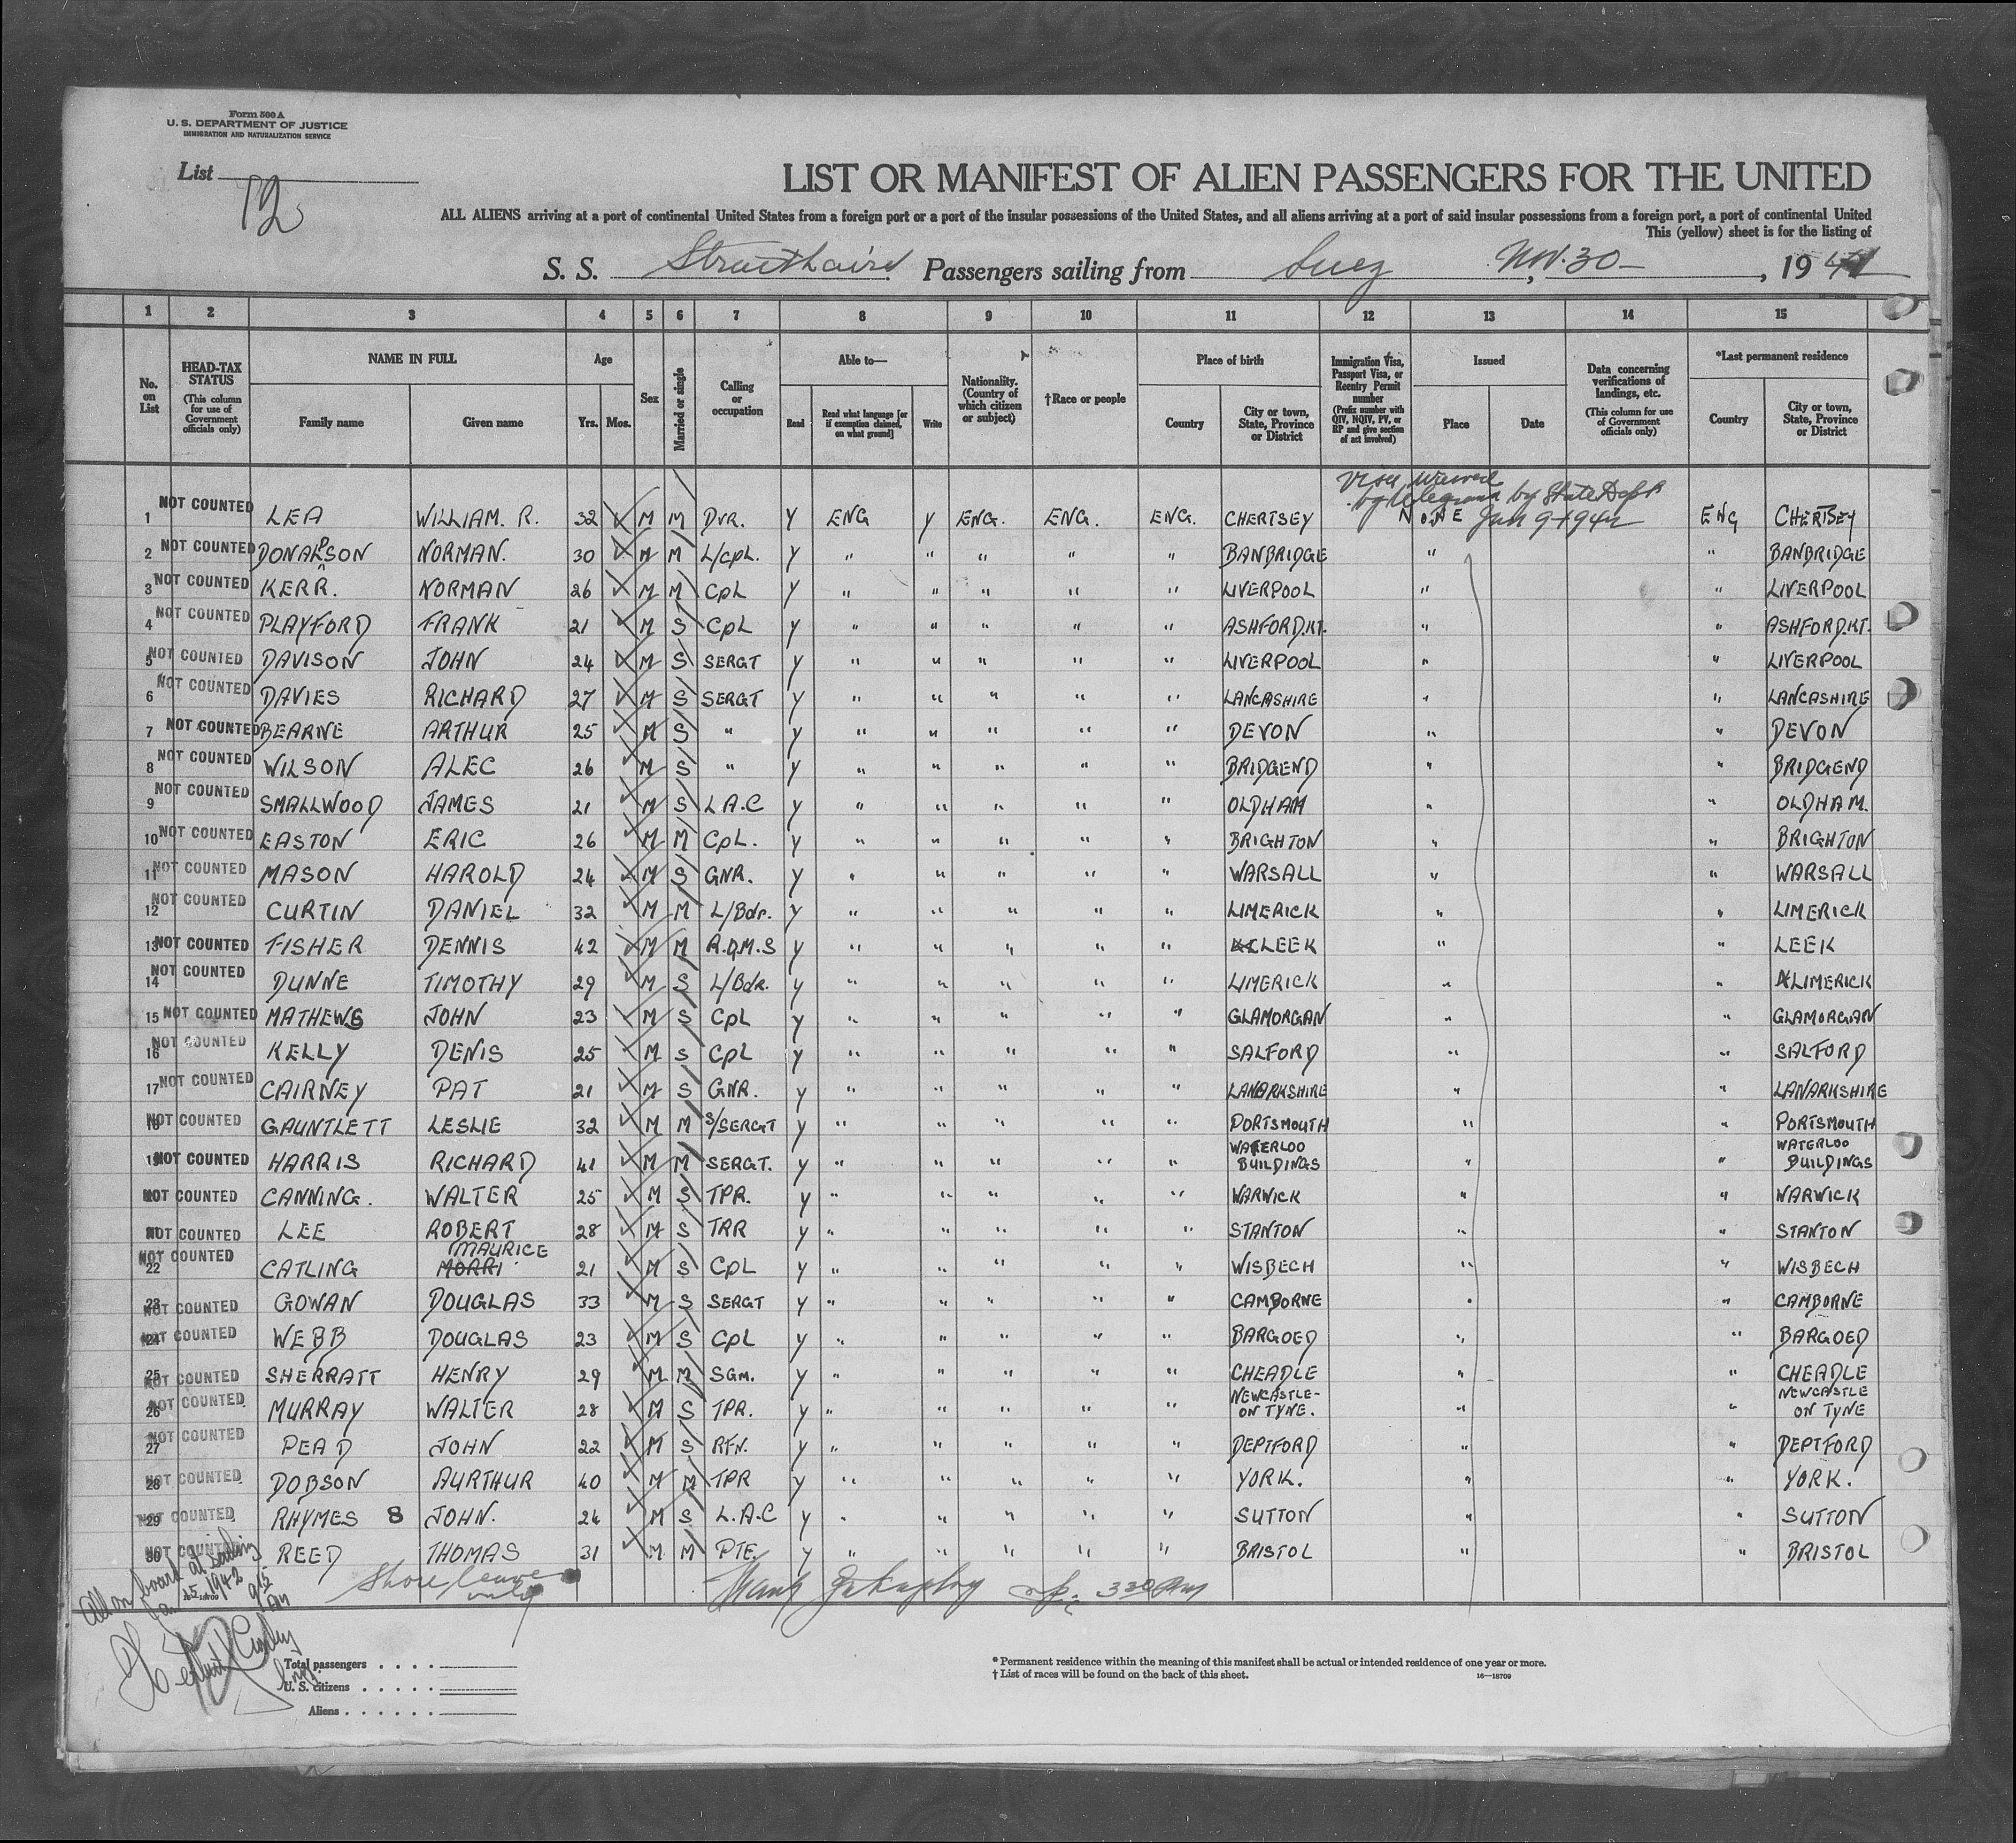 Form 500 A
U. S. DEPARTMENT OF JUSTICE
IMMIGRATION AND NATURALIZATION SERVICE
List 12
LIST OR MANIFEST OF ALIEN PASSENGERS FOR THE UNITED
ALL ALIENS arriving at a port of continental United States from a foreign port or a port of the insular possessions of the United States, and all aliens arriving at a port of said insular possessions from a foreign port, a port of continental United
This (yellow) sheet is for the listing of
S. S. Strathaird Passengers sailing from Suez, Nov. 30 -, 1941
1 2 3 4 5 6 7 8 9 10 11 12 13 14 15
No. on List
HEAD-TAX STATUS (This column for use of Government officials only)
NAME IN FULL Family name Given name
Age Yrs. Mos.
Sex
Married or single
Calling or occupation
Able to— Read Read what language [or if exemption claimed, on what ground] Write
Nationality. (Country of which citizen or subject)
†Race or people
Place of birth Country City or town, State, Province or District
Immigration Visa, Passport Visa, or Reentry Permit number (Prefix number with QIV, NQIV, PV, or RP and give section of act involved)
Issued Place Date
Data concerning verifications of landings, etc. (This column for use of Government officials only)
*Last permanent residence Country City or town, State, Province or District
Visa waived
by telegram by State Dept
Jan 9 1942
1 NOT COUNTED LEA WILLIAM. R. 32 M M DVR. Y ENG Y ENG. ENG. ENG. CHERTSEY NONE ENG CHERTSEY
2 NOT COUNTED DONALDSON NORMAN. 30 M M L/CPL. Y " " " " " BANBRIDGE " " BANBRIDGE
3 NOT COUNTED KERR. NORMAN 26 M M CPL Y " " " " " LIVERPOOL " " LIVERPOOL
4 NOT COUNTED PLAYFORD FRANK 21 M S CPL Y " " " " " ASHFORD.KT. " " ASHFORD.KT.
5 NOT COUNTED DAVISON JOHN 24 M S SERGT Y " " " " " LIVERPOOL " " LIVERPOOL
6 NOT COUNTED DAVIES RICHARD 27 M S SERGT Y " " " " " LANCASHIRE " " LANCASHIRE
7 NOT COUNTED BEARNE ARTHUR 25 M S " Y " " " " " DEVON " " DEVON
8 NOT COUNTED WILSON ALEC 26 M S " Y " " " " " BRIDGEND " " BRIDGEND
9 NOT COUNTED SMALLWOOD JAMES 21 M S L A.C Y " " " " " OLDHAM " " OLDHAM.
10 NOT COUNTED EASTON ERIC 26 M M CPL. Y " " " " " BRIGHTON " " BRIGHTON
11 NOT COUNTED MASON HAROLD 24 M S GNR. Y " " " " " WARSALL " " WARSALL
12 NOT COUNTED CURTIN DANIEL 32 M M L/Bdr. Y " " " " " LIMERICK " " LIMERICK
13 NOT COUNTED FISHER DENNIS 42 M M R.Q.M.S Y " " " " " LEEK " " LEEK
14 NOT COUNTED DUNNE TIMOTHY 29 M S L/Bdr. Y " " " " " LIMERICK " " LIMERICK
15 NOT COUNTED MATHEWS JOHN 23 M S CPL Y " " " " " GLAMORGAN " " GLAMORGAN
16 NOT COUNTED KELLY DENIS 25 M S CPL Y " " " " " SALFORD " " SALFORD
17 NOT COUNTED CAIRNEY PAT 21 M S GNR. Y " " " " " LANARKSHIRE " " LANARKSHIRE
18 NOT COUNTED GAUNTLETT LESLIE 32 M M S/SERGT Y " " " " " PORTSMOUTH " " PORTSMOUTH
19 NOT COUNTED HARRIS RICHARD 41 M M SERGT. Y " " " " " WATERLOO BUILDINGS " " WATERLOO BUILDINGS
20 NOT COUNTED CANNING. WALTER 25 M S TPR. Y " " " " " WARWICK " " WARWICK
21 NOT COUNTED LEE ROBERT 28 M S TRR Y " " " " " STANTON " " STANTON
22 NOT COUNTED CATLING MORRI MAURICE 21 M S CPL Y " " " " " WISBECH " " WISBECH
23 NOT COUNTED GOWAN DOUGLAS 33 M S SERGT Y " " " " " CAMBORNE " " CAMBORNE
24 NOT COUNTED WEBB DOUGLAS 23 M S CPL Y " " " " " BARGOED " " BARGOED
25 NOT COUNTED SHERRATT HENRY 29 M M SGM. Y " " " " " CHEADLE " " CHEADLE
26 NOT COUNTED MURRAY WALTER 28 M S TPR. Y " " " " " NEWCASTLE- ON TYNE. " " NEWCASTLE ON TYNE
27 NOT COUNTED PEAD JOHN 22 M S RFN. Y " " " " " DEPTFORD " " DEPTFORD
28 NOT COUNTED DOBSON AURTHUR 40 M M TPR Y " " " " " YORK. " " YORK.
29 NOT COUNTED RHYMES 8 JOHN. 24 M S L.A.C Y " " " " " SUTTON " " SUTTON
30 NOT COUNTED REED THOMAS 31 M M PTE. Y " " " " " BRISTOL " " BRISTOL
Shore leave only
330 PM
All on board at sailing
Jan 15 1942 9 15 AM
16-18709
Total passengers . . . .
U. S. citizens . . . . .
Aliens . . . . . .
* Permanent residence within the meaning of this manifest shall be actual or intended residence of one year or more.
† List of races will be found on the back of this sheet.
16—18709